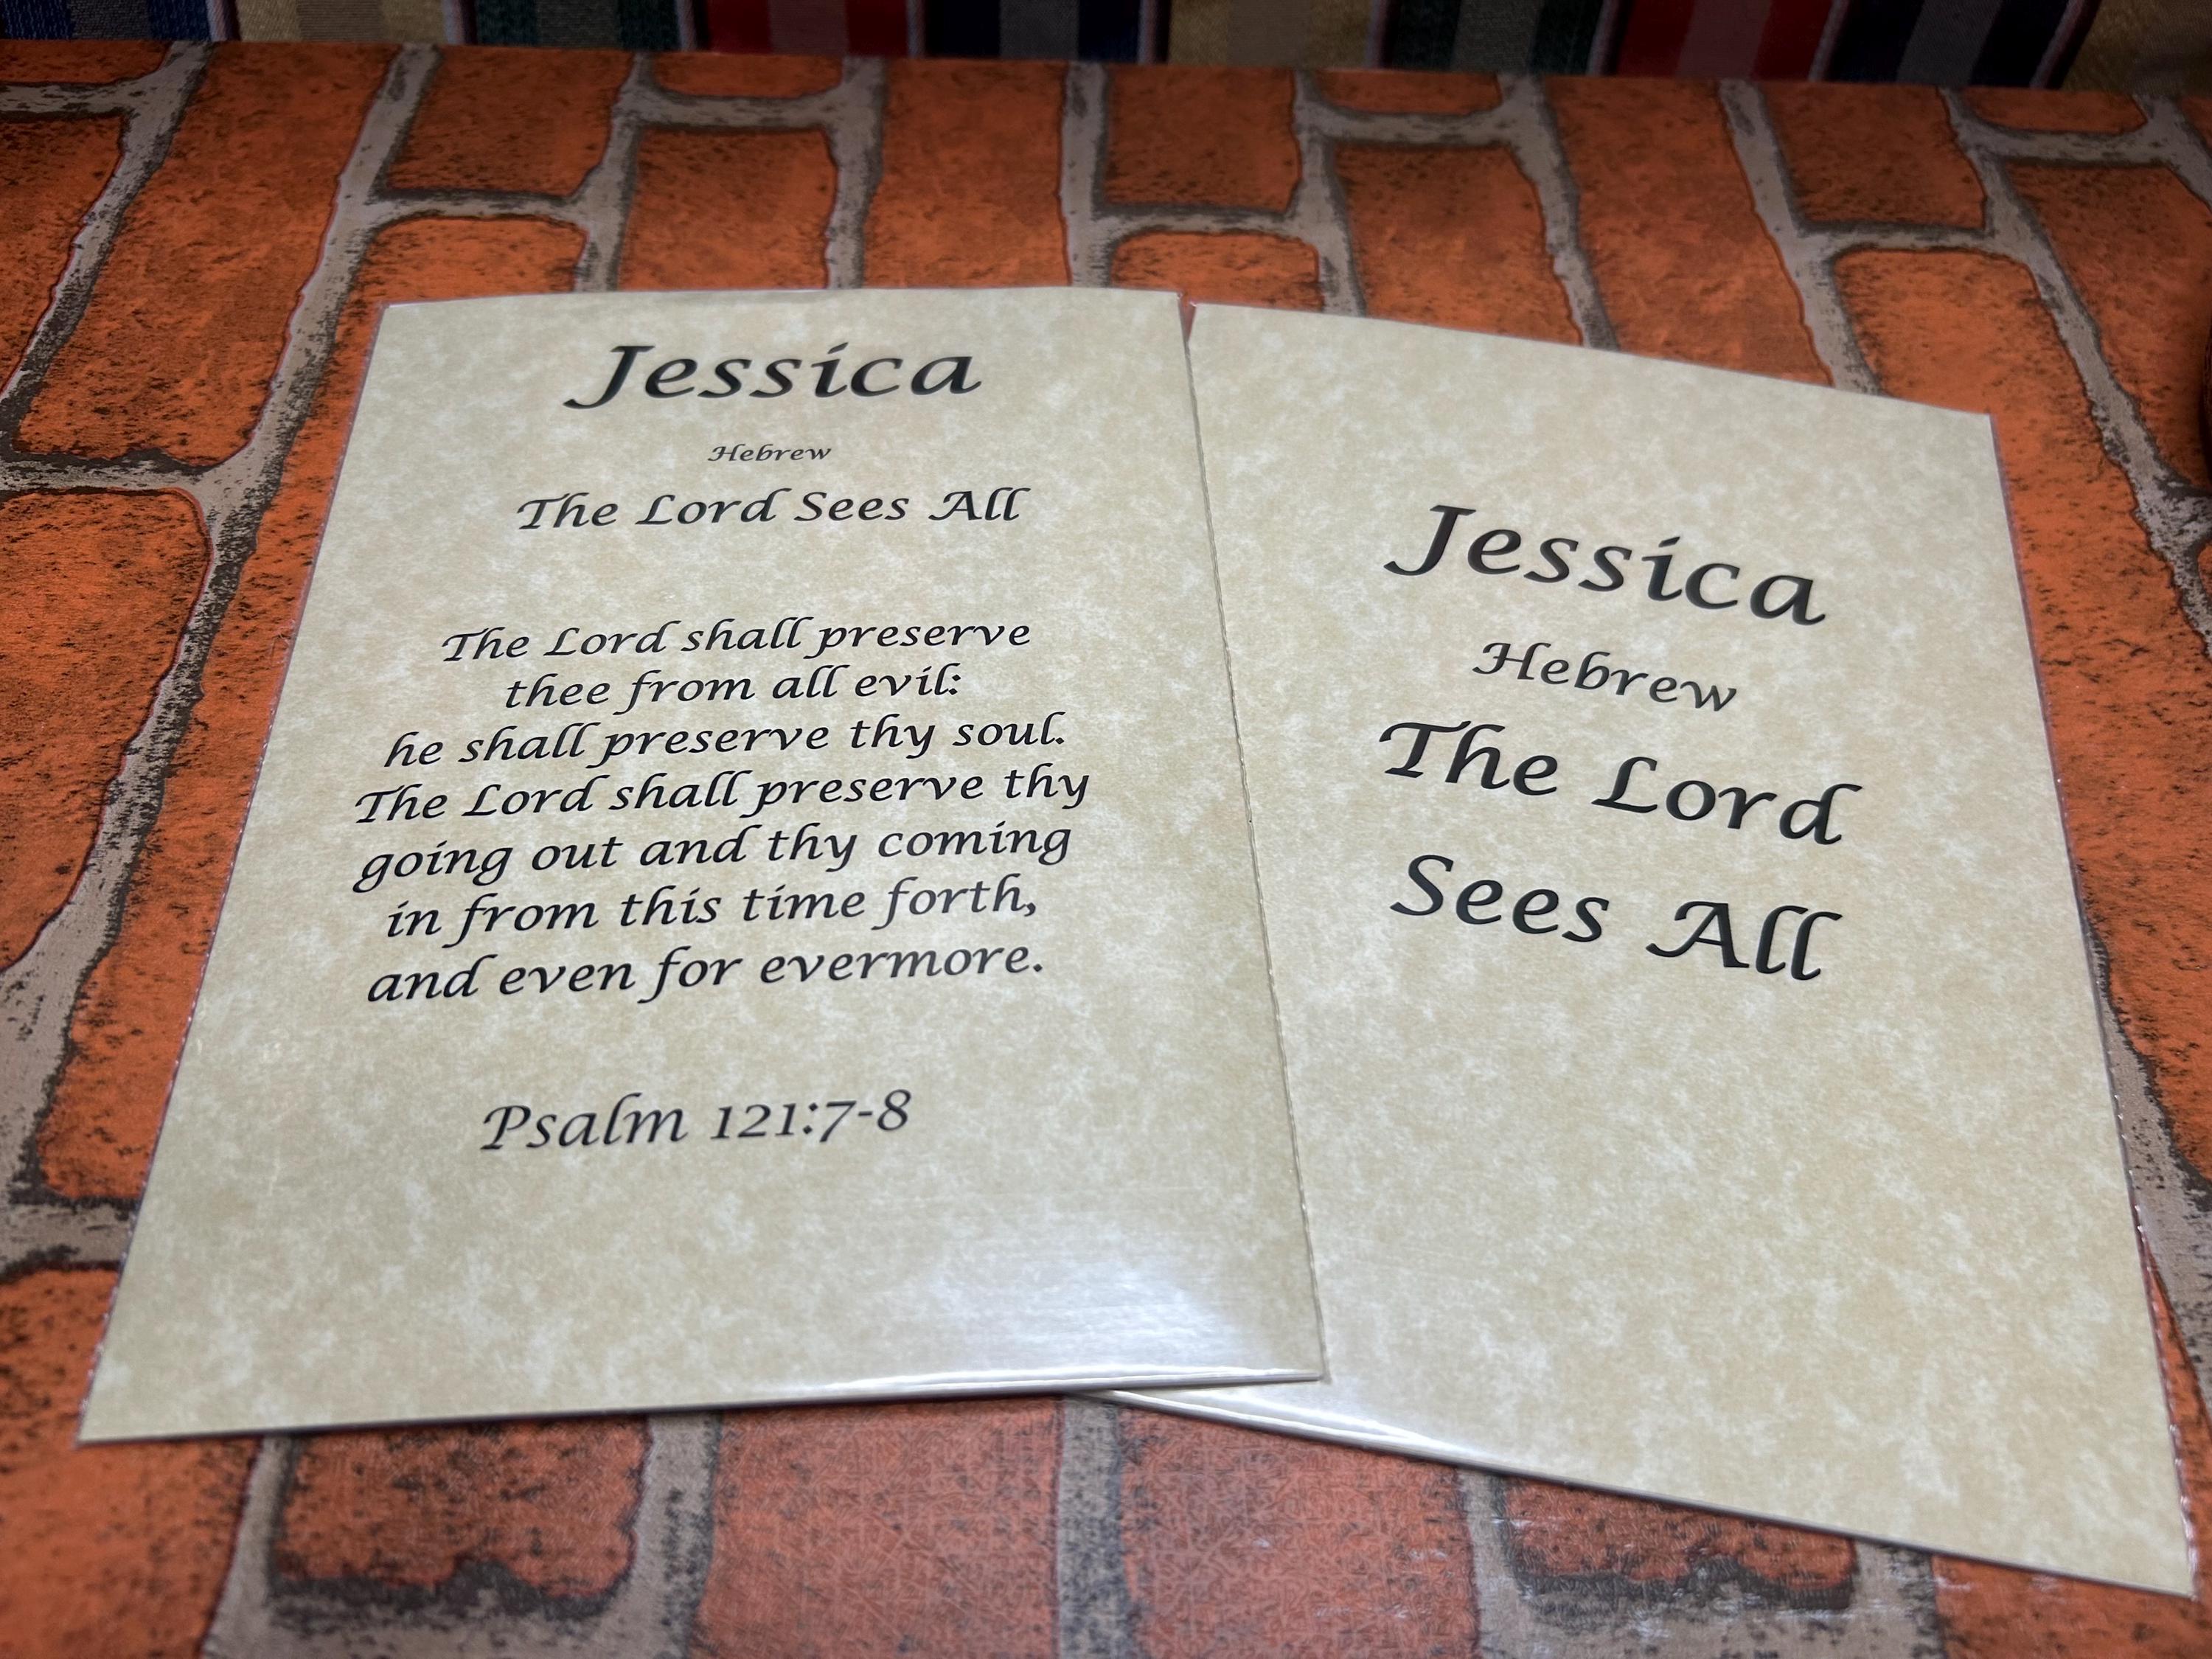 Jessica
Hebrew
The Lord Sees All
The Lord shall preserve
thee from all evil:
he shall preserve thy soul.
The Lord shall preserve thy
going out and thy coming
in from this time forth,
and even for evermore.
Psalm 121:7-8
Jessica
Hebrew
The Lord
Sees All